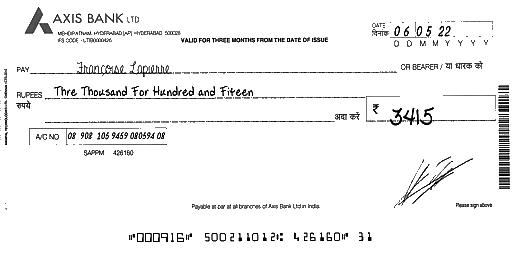 AXIS BANK LTD
MEHDIPATNAM, HYDERABAD (AP) HYDERABAD 500028
IFS CODE - UTIB0000426
VALID FOR THREE MONTHS FROM THE DATE OF ISSUE
DATE
दिनांक 06 05 22
D D M M Y Y Y Y
PAY Francoise Lapierre OR BEARER / या धारक को
RUPEES Thre Thousand For Hundred and Fiteen
रुपये अदा करें ₹ 3415
A/C NO 08 908 105 9459 080594 08
SAPPM 426160
Payable at par at all branches of Axis Bank Ltd in India.
Please sign above
"000916" 500211012: 426160" 31